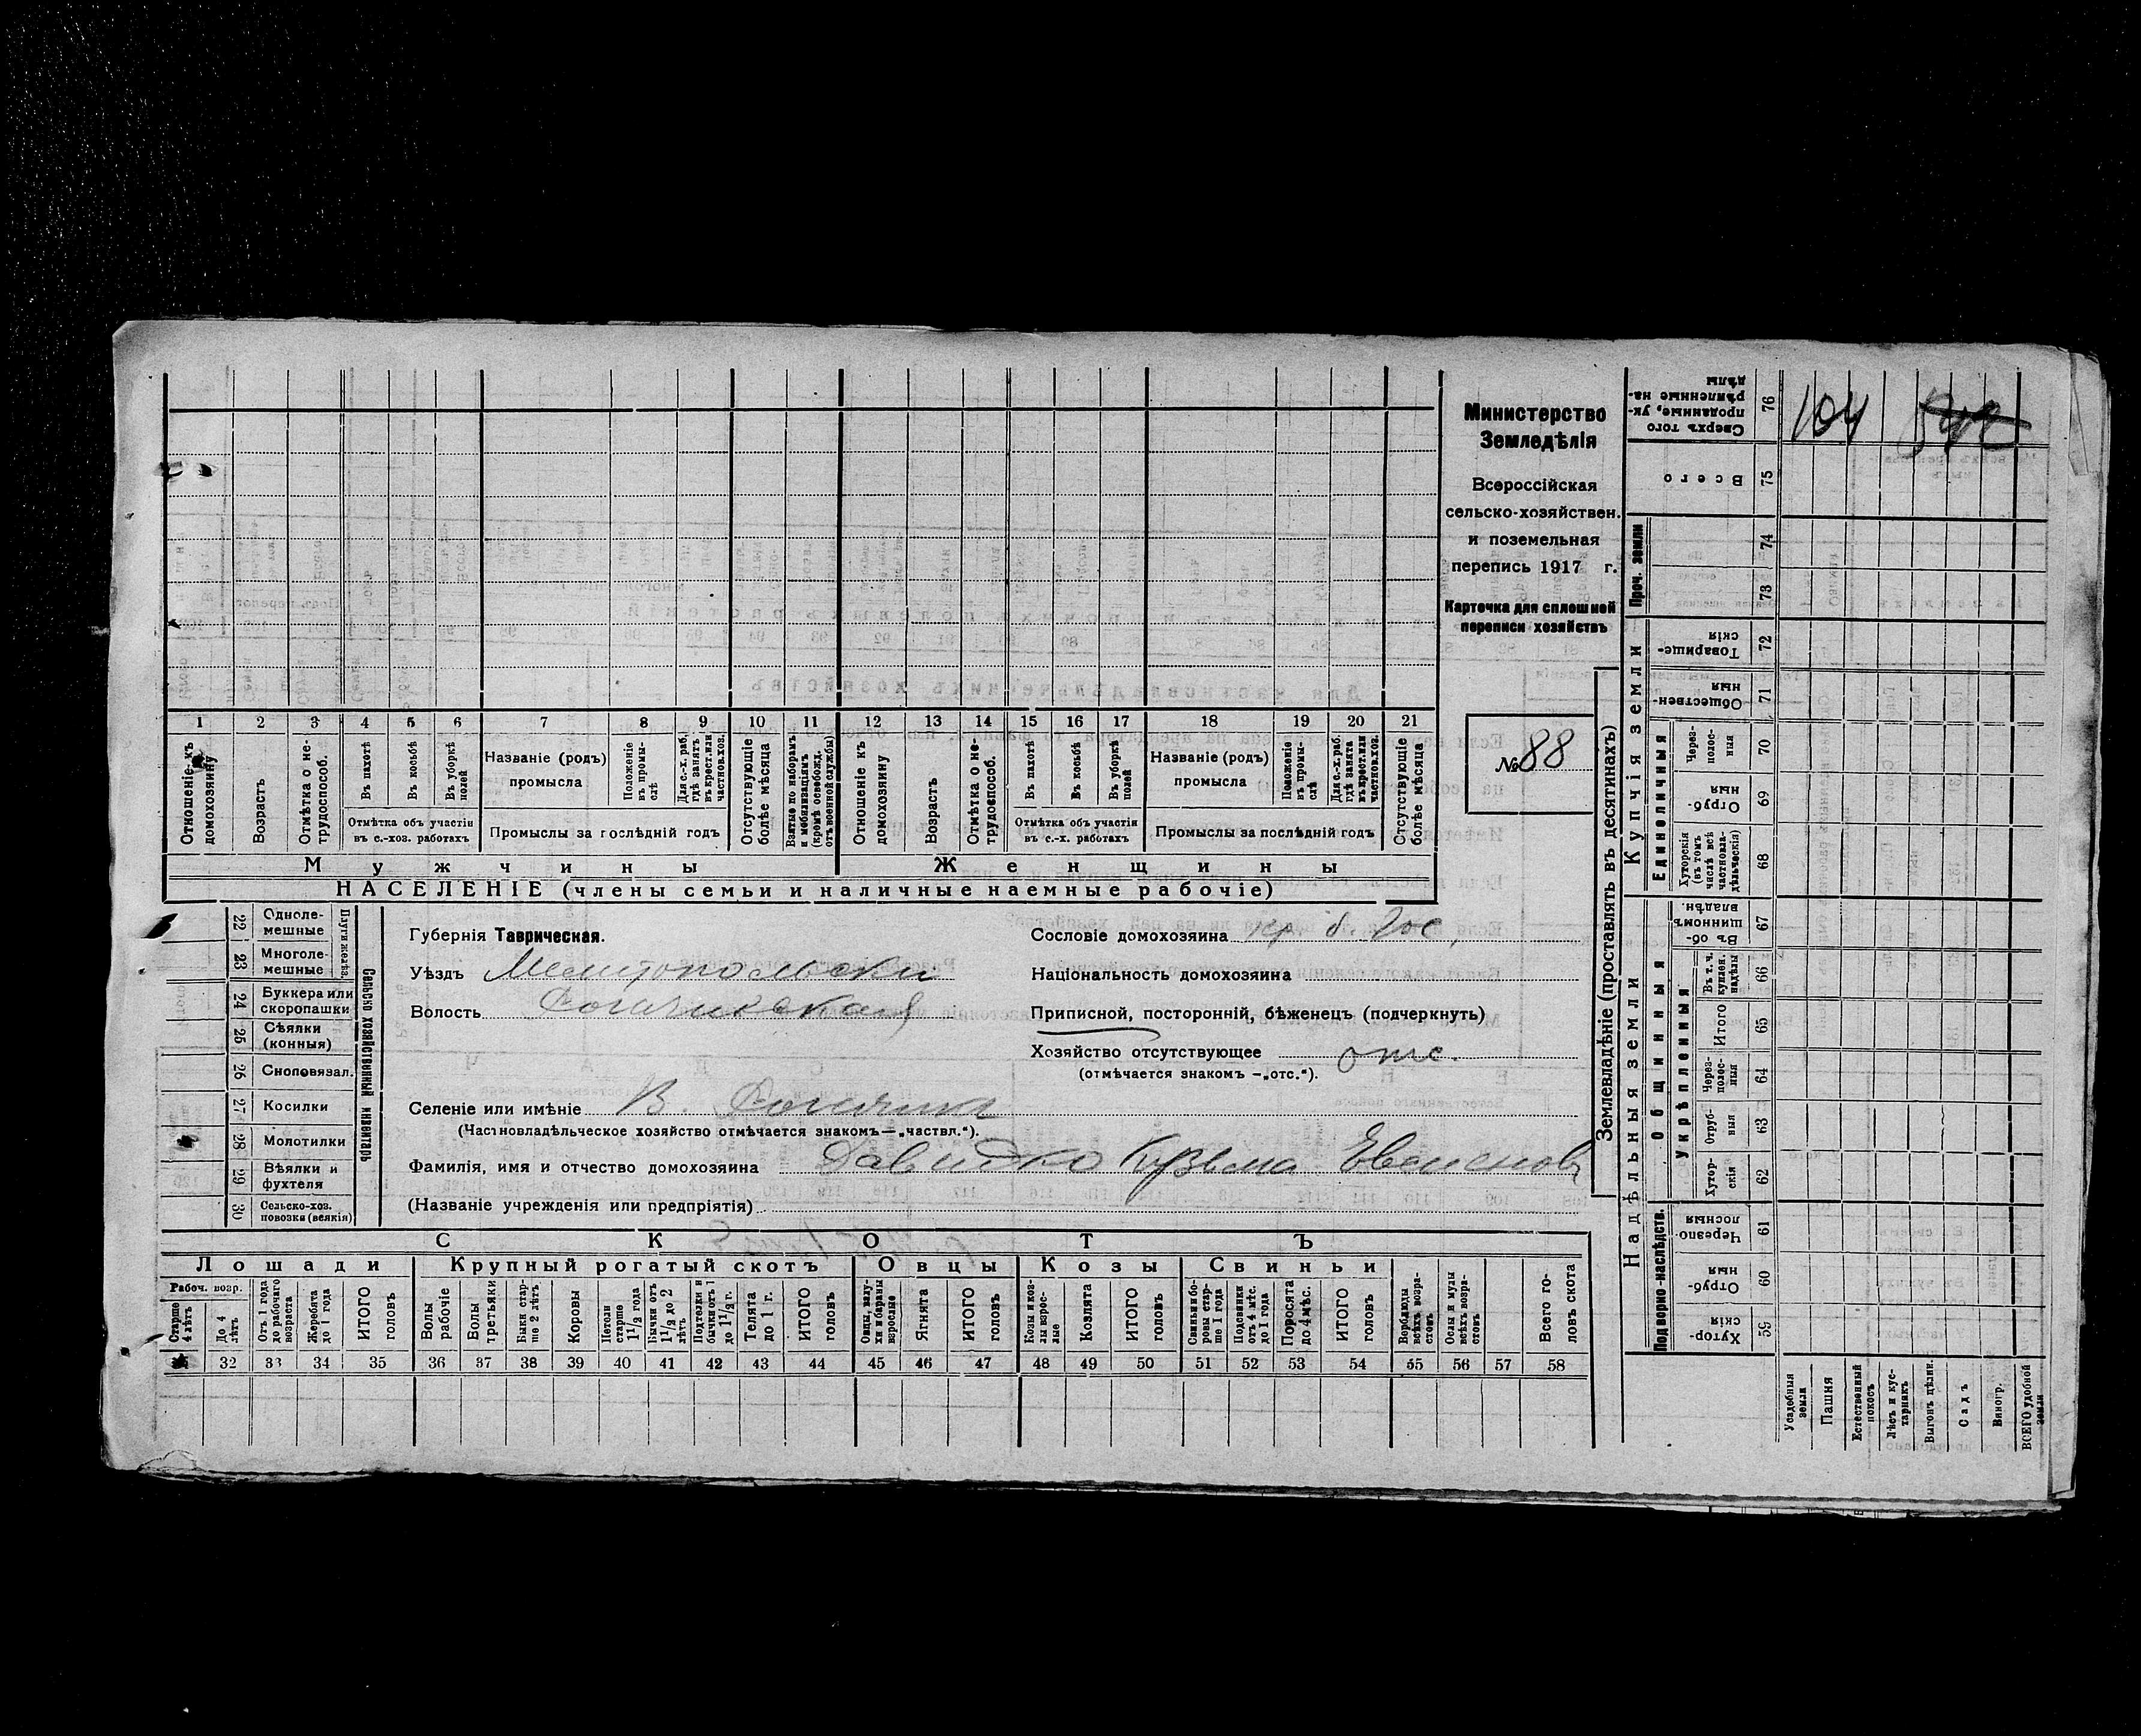 Министерство
Земледѣлія
Всероссійская
сельско-хозяйствен.
и поземельная
перепись 1917 г.
Карточка для сплошной
переписи хозяйствъ
№ 88
1 2 3 4 5 6 7 8 9 10 11 12 13 14 15 16 17 18 19 20 21
Отношеніе къ домохозяину
Возрастъ
Отмѣтка о нетрудоспособ.
Въ пахотѣ
Въ косьбѣ
Въ уборкѣ полей
Отмѣтка объ участіи въ с.-хоз. работахъ
Названіе (родъ) промысла
Положеніе въ промыслѣ
Для с.-х. раб. гдѣ занятъ въ крест. или частнов. хоз.
Промыслы за послѣдній годъ
Отсутствующіе болѣе мѣсяца
Взятые по наборамъ и мобилизаціямъ (кромѣ освобожд. отъ военной службы)
Отношеніе къ домохозяину
Возрастъ
Отмѣтка о нетрудоспособ.
Въ пахотѣ
Въ косьбѣ
Въ уборкѣ полей
Отмѣтка объ участіи въ с.-х. работахъ
Названіе (родъ) промысла
Положеніе въ промыслѣ
Для с.-х. раб. гдѣ занята въ крест. или частнов. хоз.
Промыслы за послѣдній годъ
Отсутствующіе болѣе мѣсяца
Мужчины Женщины
НАСЕЛЕНІЕ (члены семьи и наличные наемные рабочіе)
22 Одноле-мешные
23 Многоле-мешные
Плуги желѣз.
24 Буккера или скоропашки
25 Сѣялки (конныя)
26 Сноповязал.
27 Косилки
28 Молотилки
29 Вѣялки и фухтеля
30 Сельско-хоз. повозки (всякія)
Сельско хозяйственный инвентарь
Губернія Таврическая.
Уѣздъ Мелитопольски
Волость Рогачикская
Сословіе домохозяина кр. б. Гос.
Національность домохозяина
Приписной, посторонній, бѣженецъ (подчеркнуть)
Хозяйство отсутствующее отс.
(отмѣчается знакомъ —„отс.“).
Селеніе или имѣніе В. Рогачик
(Частновладѣльческое хозяйство отмѣчается знакомъ—„частвл.“).
Фамилія, имя и отчество домохозяина Давидко Кузьма
(Названіе учрежденія или предпріятія)
СКОТЪ
Лошади Крупный рогатый скотъ Овцы Козы Свиньи
Рабоч. возр.
Старше 4 лѣтъ
До 4 лѣтъ
Отъ 1 года до рабочаго возраста
Жеребята до 1 года
ИТОГО головъ
Волы рабочіе
Волы третьяки
Быки старше 2 лѣтъ
Коровы
Нетели старше 1 1/2 года
Бычки отъ 1 1/2 до 2 лѣтъ
Подтелки и бычки отъ 1 до 1 1/2 г.
Телята до 1 г.
ИТОГО головъ
Овцы, валухи и бараны взрослые
Ягнята
ИТОГО головъ
Козы и козлы взрослые
Козлята
ИТОГО головъ
Свиньи боровы старше 1 года
Подсвинки отъ 4 мѣс. до 1 года
Поросята до 4 мѣс.
ИТОГО головъ
Верблюды всѣхъ возрастовъ
Ослы и мулы всѣхъ возрастовъ
Всего головъ скота
32 33 34 35 36 37 38 39 40 41 42 43 44 45 46 47 48 49 50 51 52 53 54 55 56 57 58
Землевладѣніе (проставлять въ десятинахъ)
Купчія земли
Надѣльныя земли
Сверхъ того проданные, укрѣпленные надѣлы 76
104
Всего 75
Проч. земли
74
73
Товарищескія 72
Общественныя 71
Единоличныя
Черезполосныя 70
Отрубныя 69
Хуторскія (въ томъ числѣ всѣ частновладѣльческія) 68
Общинныя
Въ общинномъ владѣн. 67
Укрѣпленныя
Въ т. ч. куплен. надѣлы 66
Итого 65
Черезполосныя 64
Отрубныя 63
Хуторскія 62
Подворно-наслѣдств.
Черезполосныя 61
Отрубныя 60
Хуторскія 59
Усадебныя земли
Пашня
Естественный покосъ
Лѣсъ и кустарникъ
Выгонъ цѣлин.
Садъ
Виногр.
ВСЕГО удобной земли